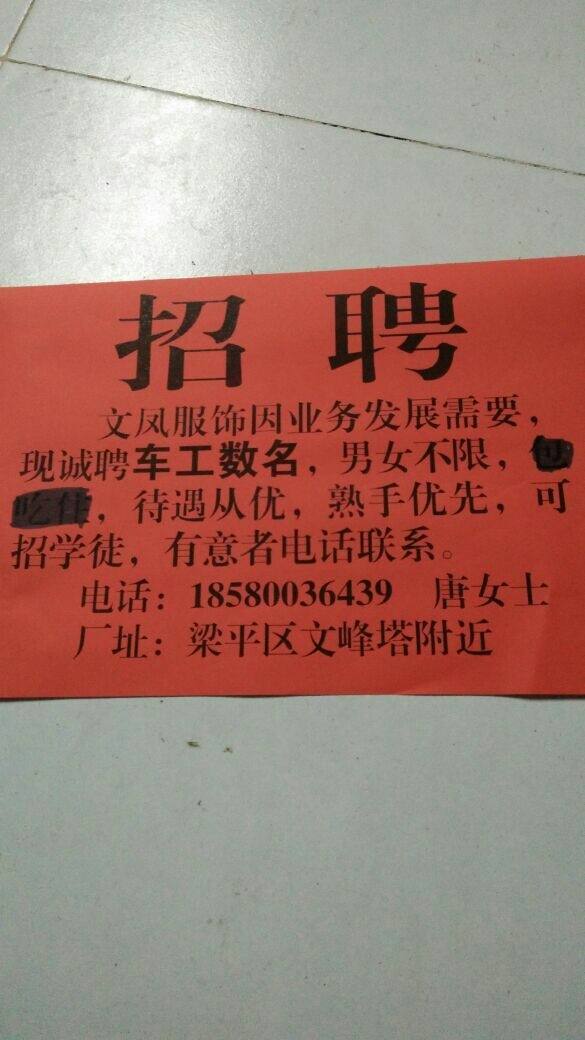 招聘
文凤服饰因业务发展需要，
现诚聘车工数名，男女不限，包
吃住，待遇从优，熟手优先，可
招学徒，有意者电话联系。
电话：18580036439 唐女士
厂址：梁平区文峰塔附近